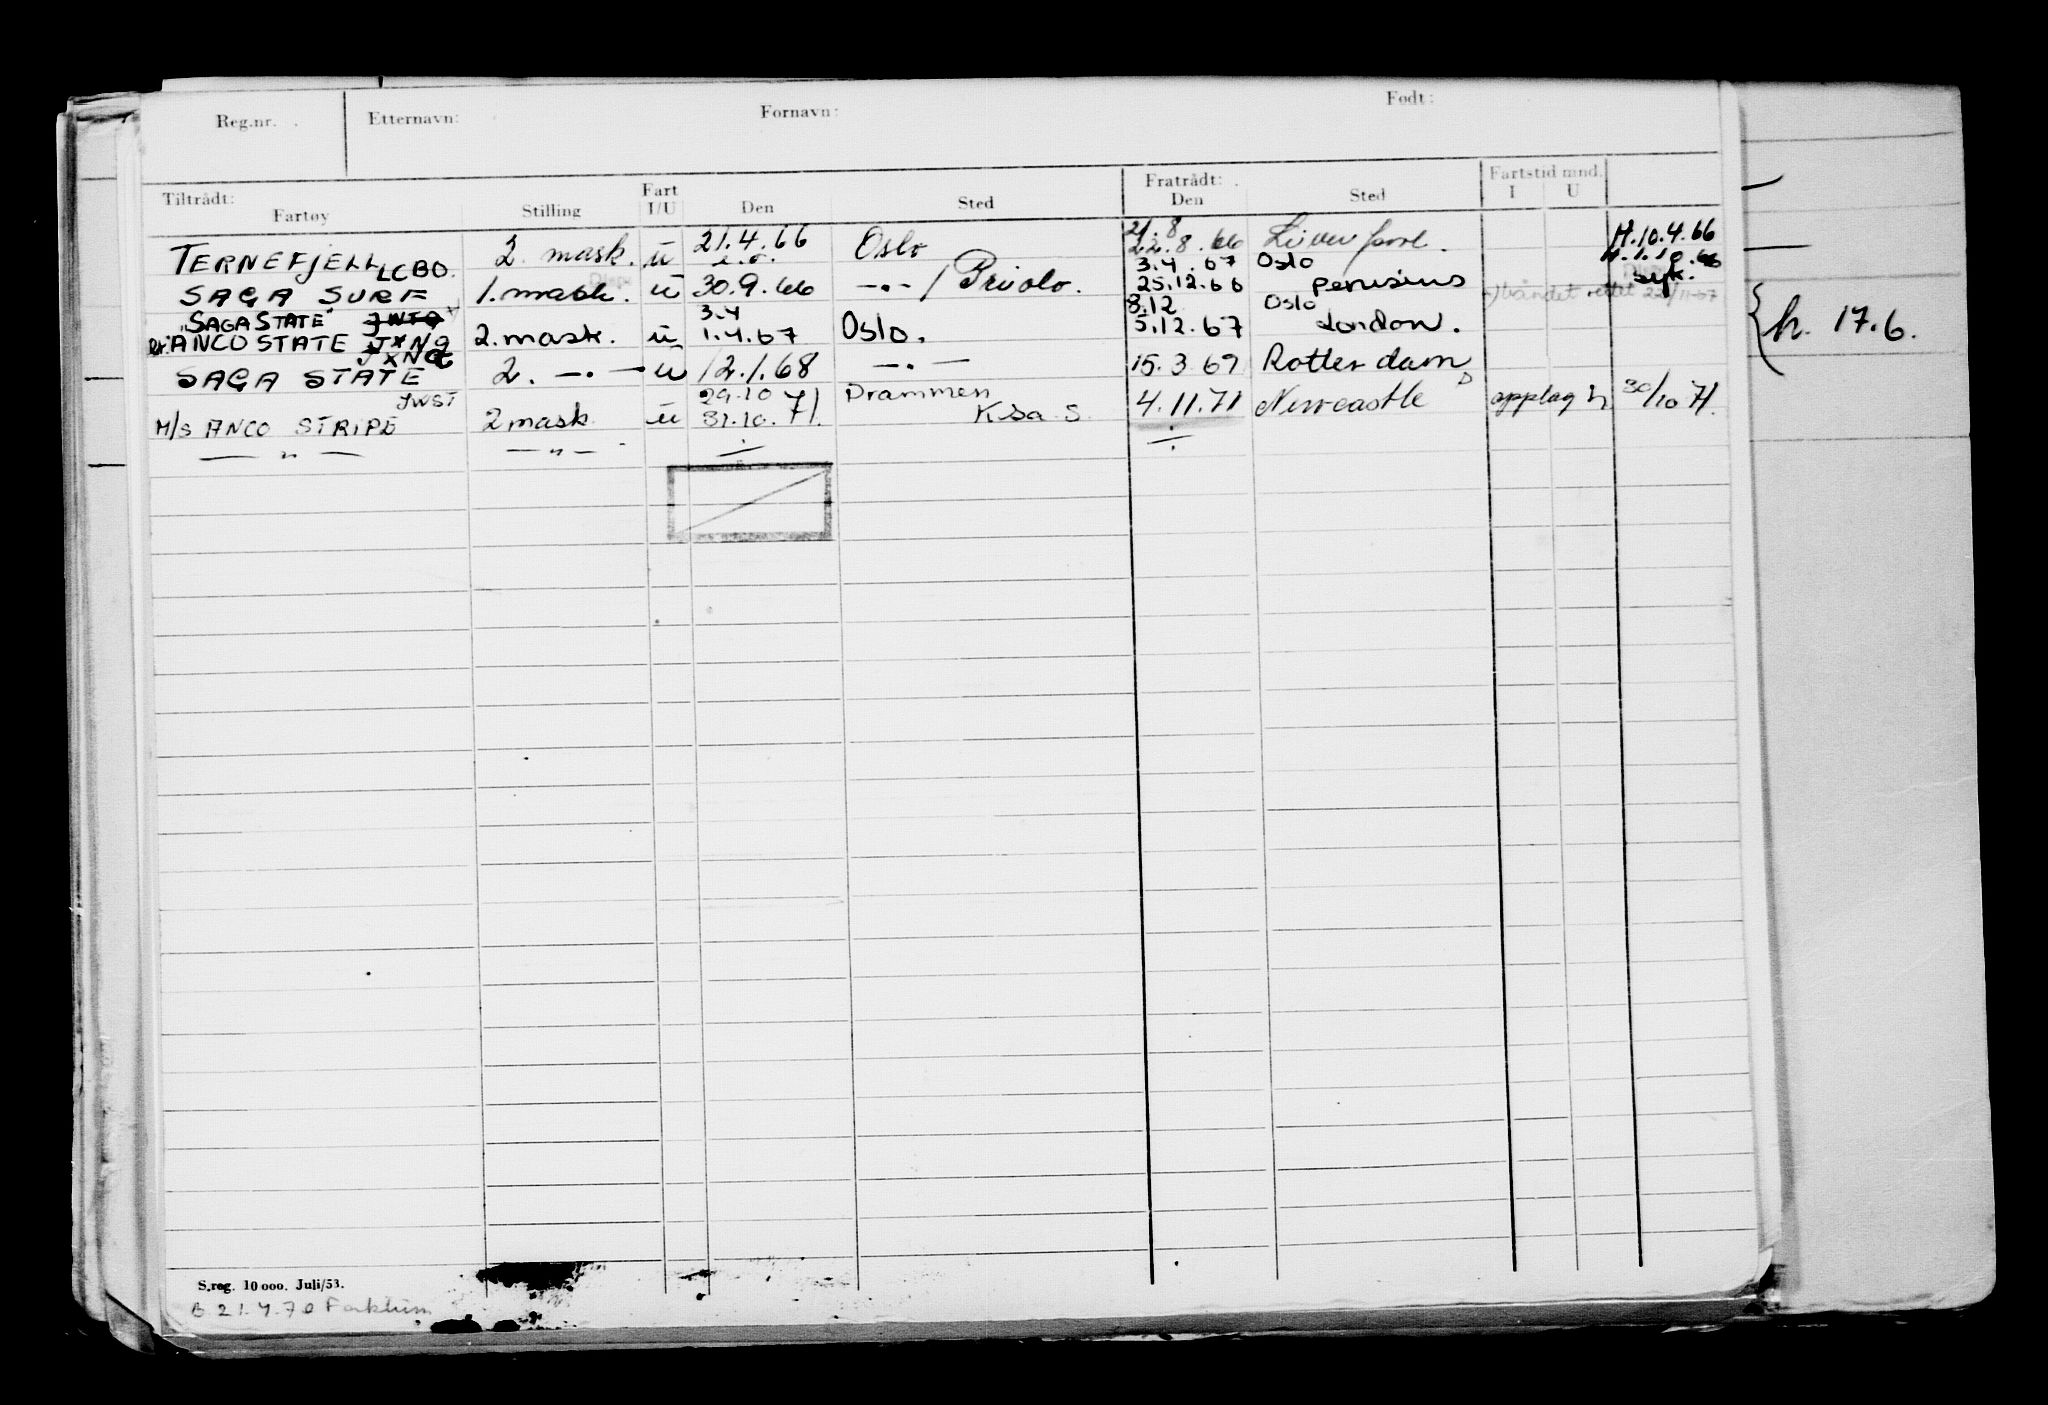 Reg.nr. Etternavn: Fornavn: Født:
Tiltrådt: Fratrådt: Fartstid mnd.
Fartøy Stilling Fart I/U Den Sted Den Sted I U
TERNEFJELL LCBO. 2. mask. u 21.4.66 Oslo 21.8 22.8.66 Liverpool. H.10.4.66
SAGA SURF 1. mask. u 30.9.66 —·—/Priolo. 3.4.67 25.12.66 Oslo H.1.10.66 syk.
"SAGA STATE" JWTO
ANCO STATE JXNQ 2. mask. u 3.4 1.4.67 Oslo. 8.12 5.12.67 Oslo London.
SAGA STATE JXNQ 2. —·— u 12.1.68 —·— 15.3.69 Rotterdam
M/S ANCO STRIPE JWST 2 mask. u 29.10 31.10.71. Drammen 4.11.71 Newcastle opplag 30/10 71.
— " — — " — ÷ ÷
h. 17.6.
S.reg. 10 000. Juli/53.